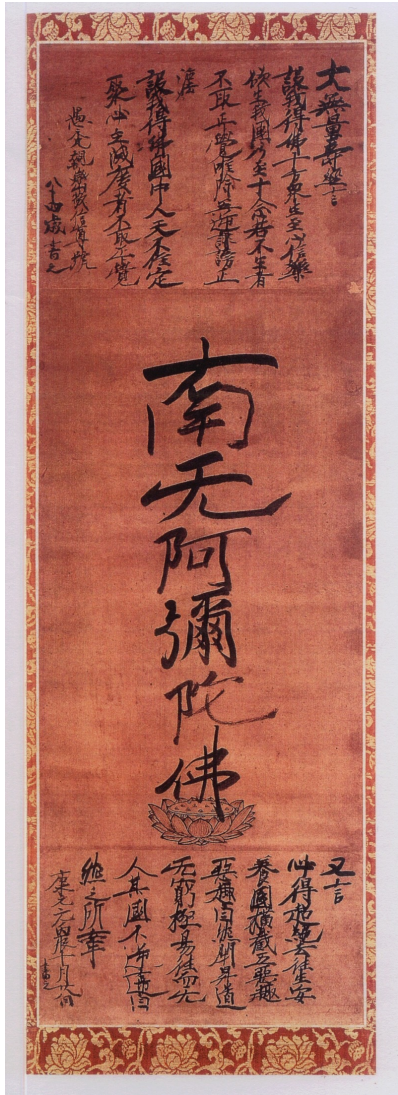 大無量壽經言
設我得佛十方衆生至心信樂
欲生我國乃至十念若不生者
不取正覺唯除五逆誹謗正
法
設我得佛國中人天不住定
聚必至滅度者不取正覺
愚禿親鸞敬信尊號
八十四歳書之
南无阿彌陀佛
又言
必得超絶去往生安
養國横截五惡趣
惡趣自然閉昇道
无窮極易往而无
人其國不逆違自
然之所牽
康元元丙辰十月廿八日
書之